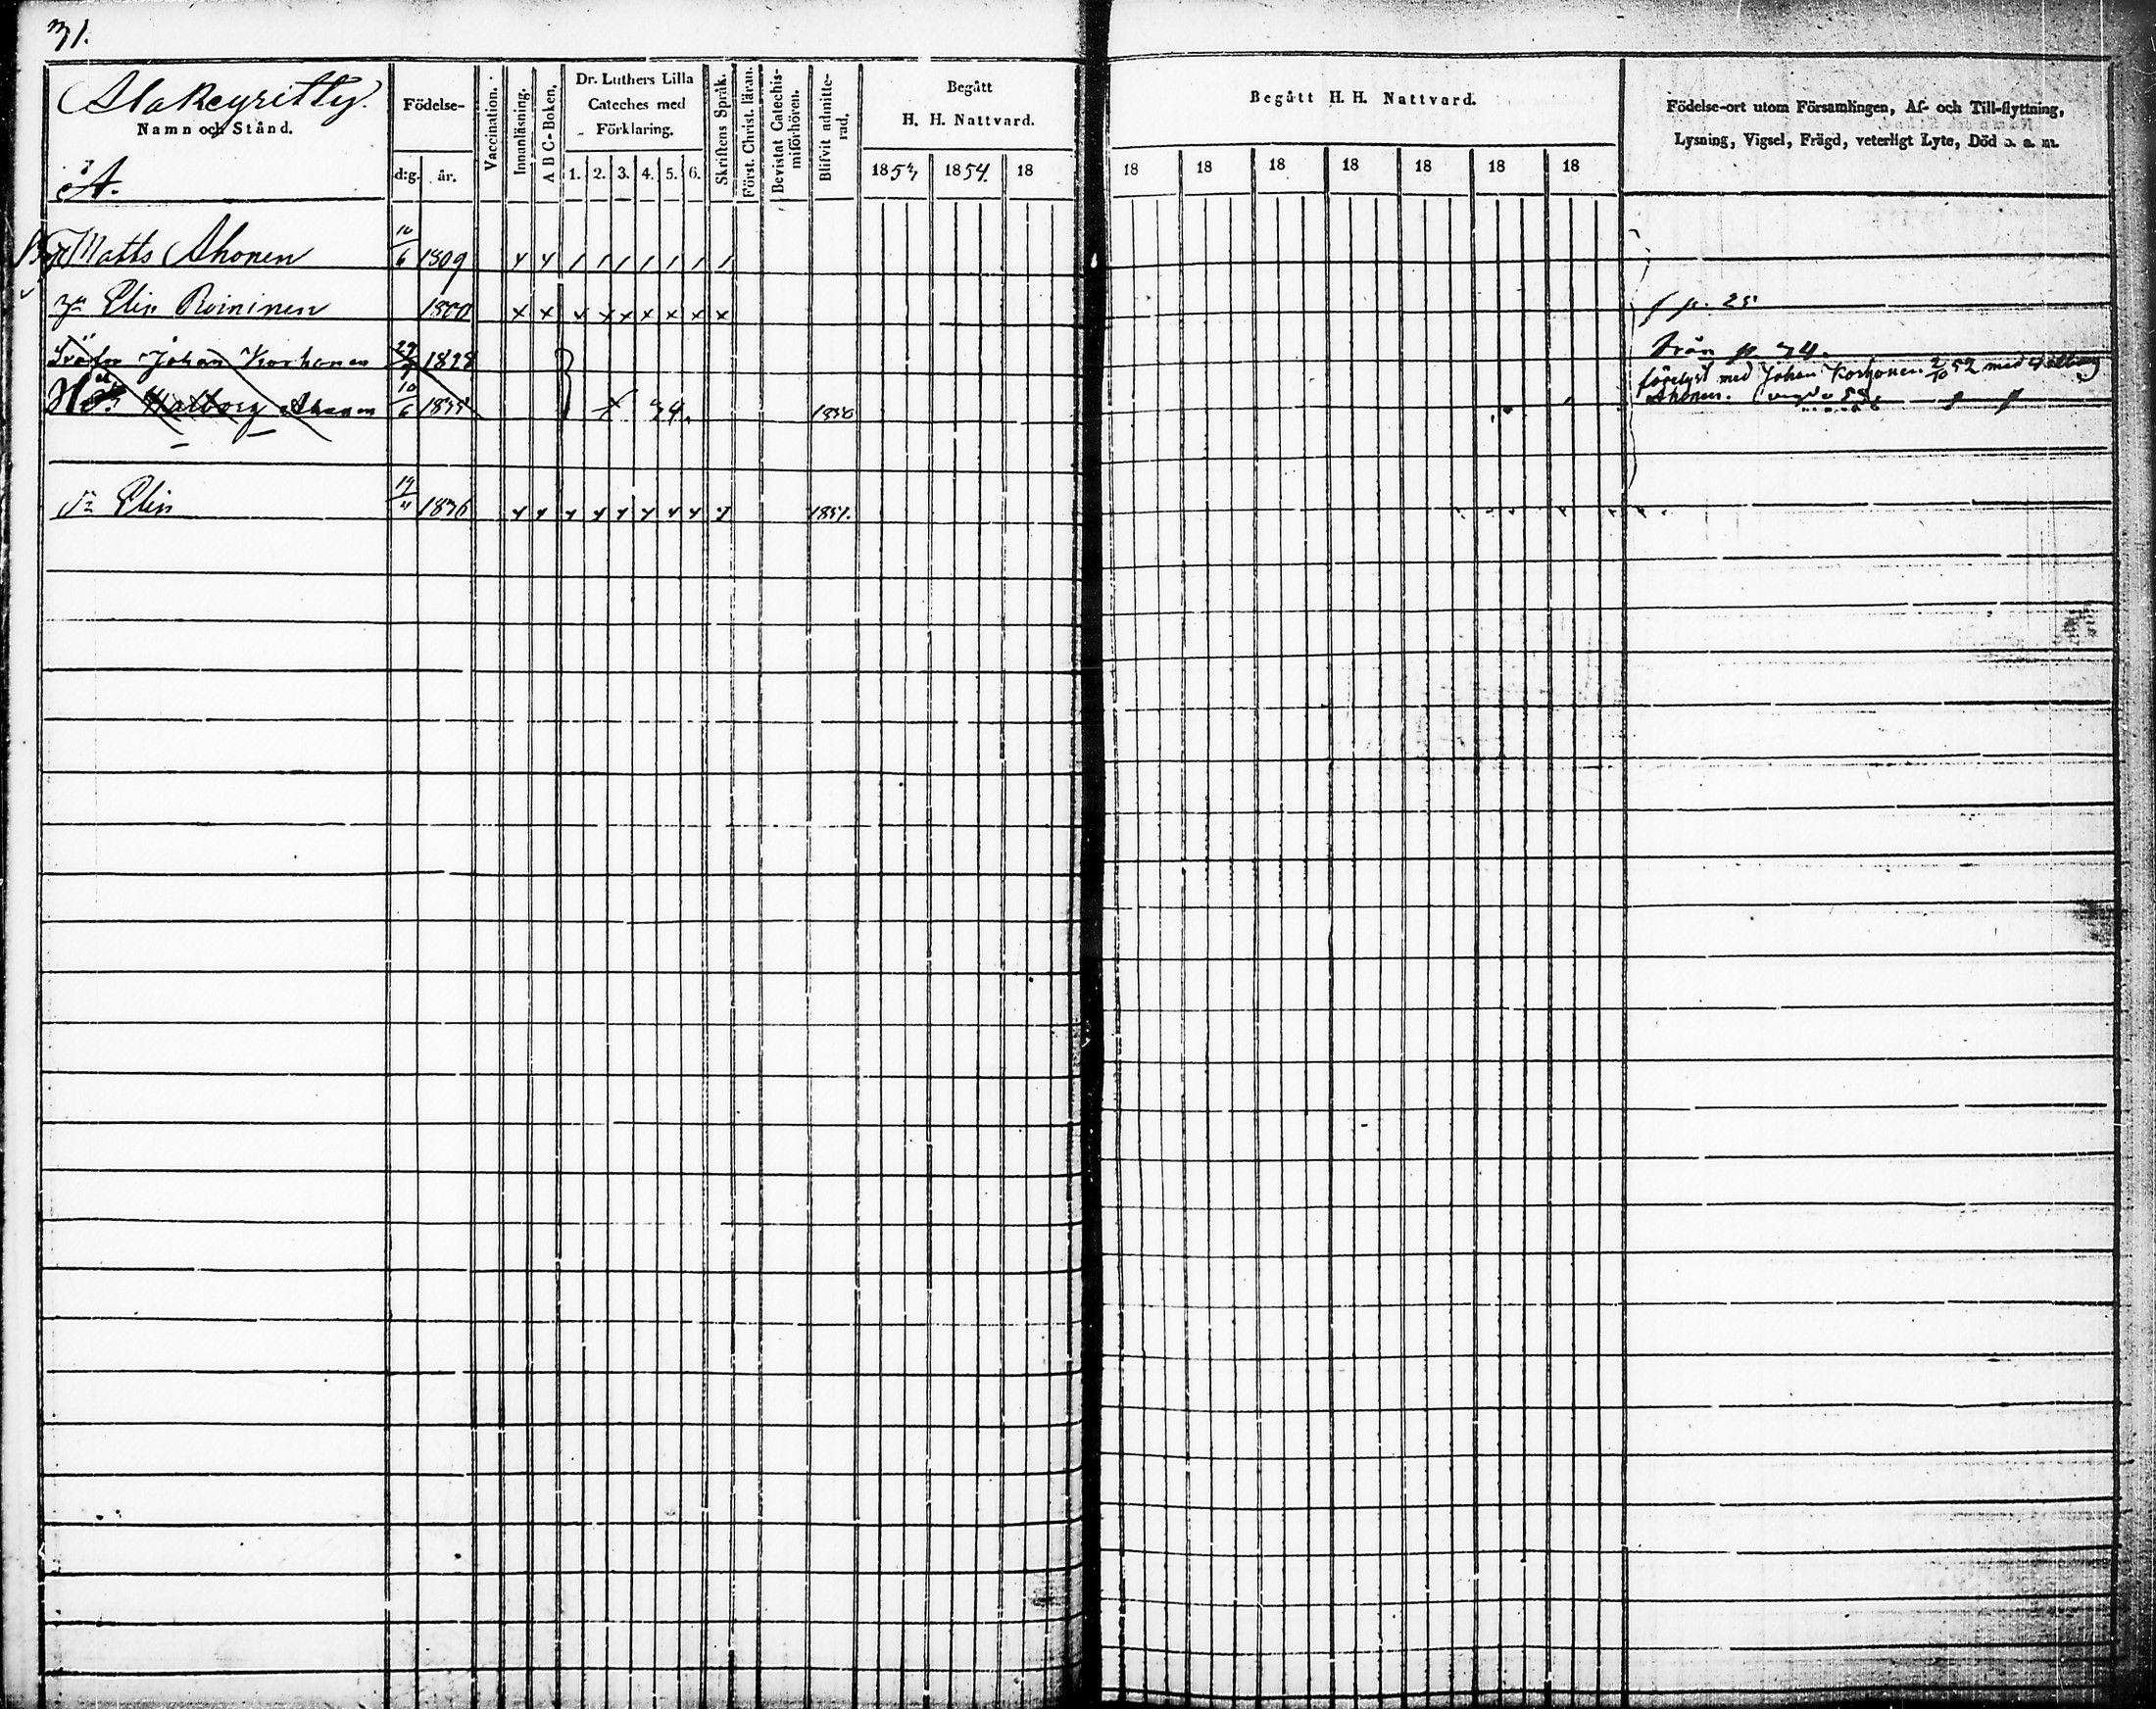 31.
Alakeyritty.
Namn och Stånd.
Födelse-
d:g. år.
Vaccination.
Innanläsning.
A B C-Boken.
Dr. Luthers Lilla
Cateches med
Förklaring.
1. 2. 3. 4. 5. 6.
Skriftens Språk.
Först. Christ. läran.
Bevistat Catechis-
miförhören.
Blifvit admitte-
rad.
Begått
H. H. Nattvard.
1853 1854. 18
Begått H. H. Nattvard.
18 18 18 18 18 18 18
Födelse-ort utom Församlingen, Af- och Till-flyttning,
Lysning, Vigsel, Frägd, veterligt Lyte, Död o. s. m.
Matts Ahonen 10/6 1809 x x / / / / / / /
Elin Roininen 1800 x x x x x x x x x p. 25
Johan Korhonen 1828 från p. 74.
förelyst med Johan Korhonen 2/10 52 med Walborg
Walborg Ahonen 10/6 1835 74. 1850 Ahonen.
Elin 1836 x x x x x x x x x 1851.